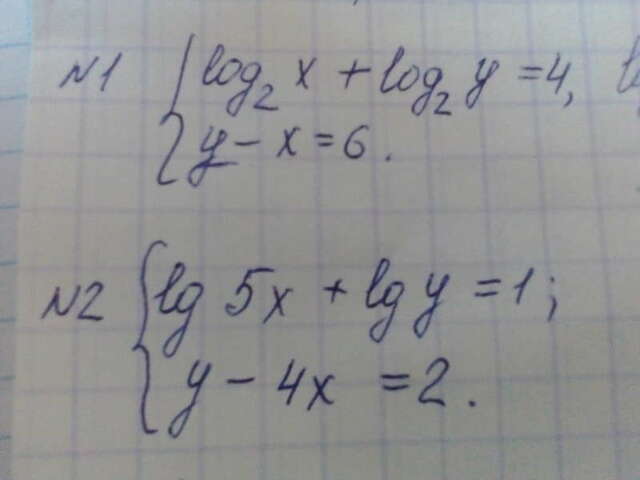 №1 { log₂ x + log₂ y = 4,
y - x = 6.
№2 { lg 5x + lg y = 1;
y - 4x = 2.